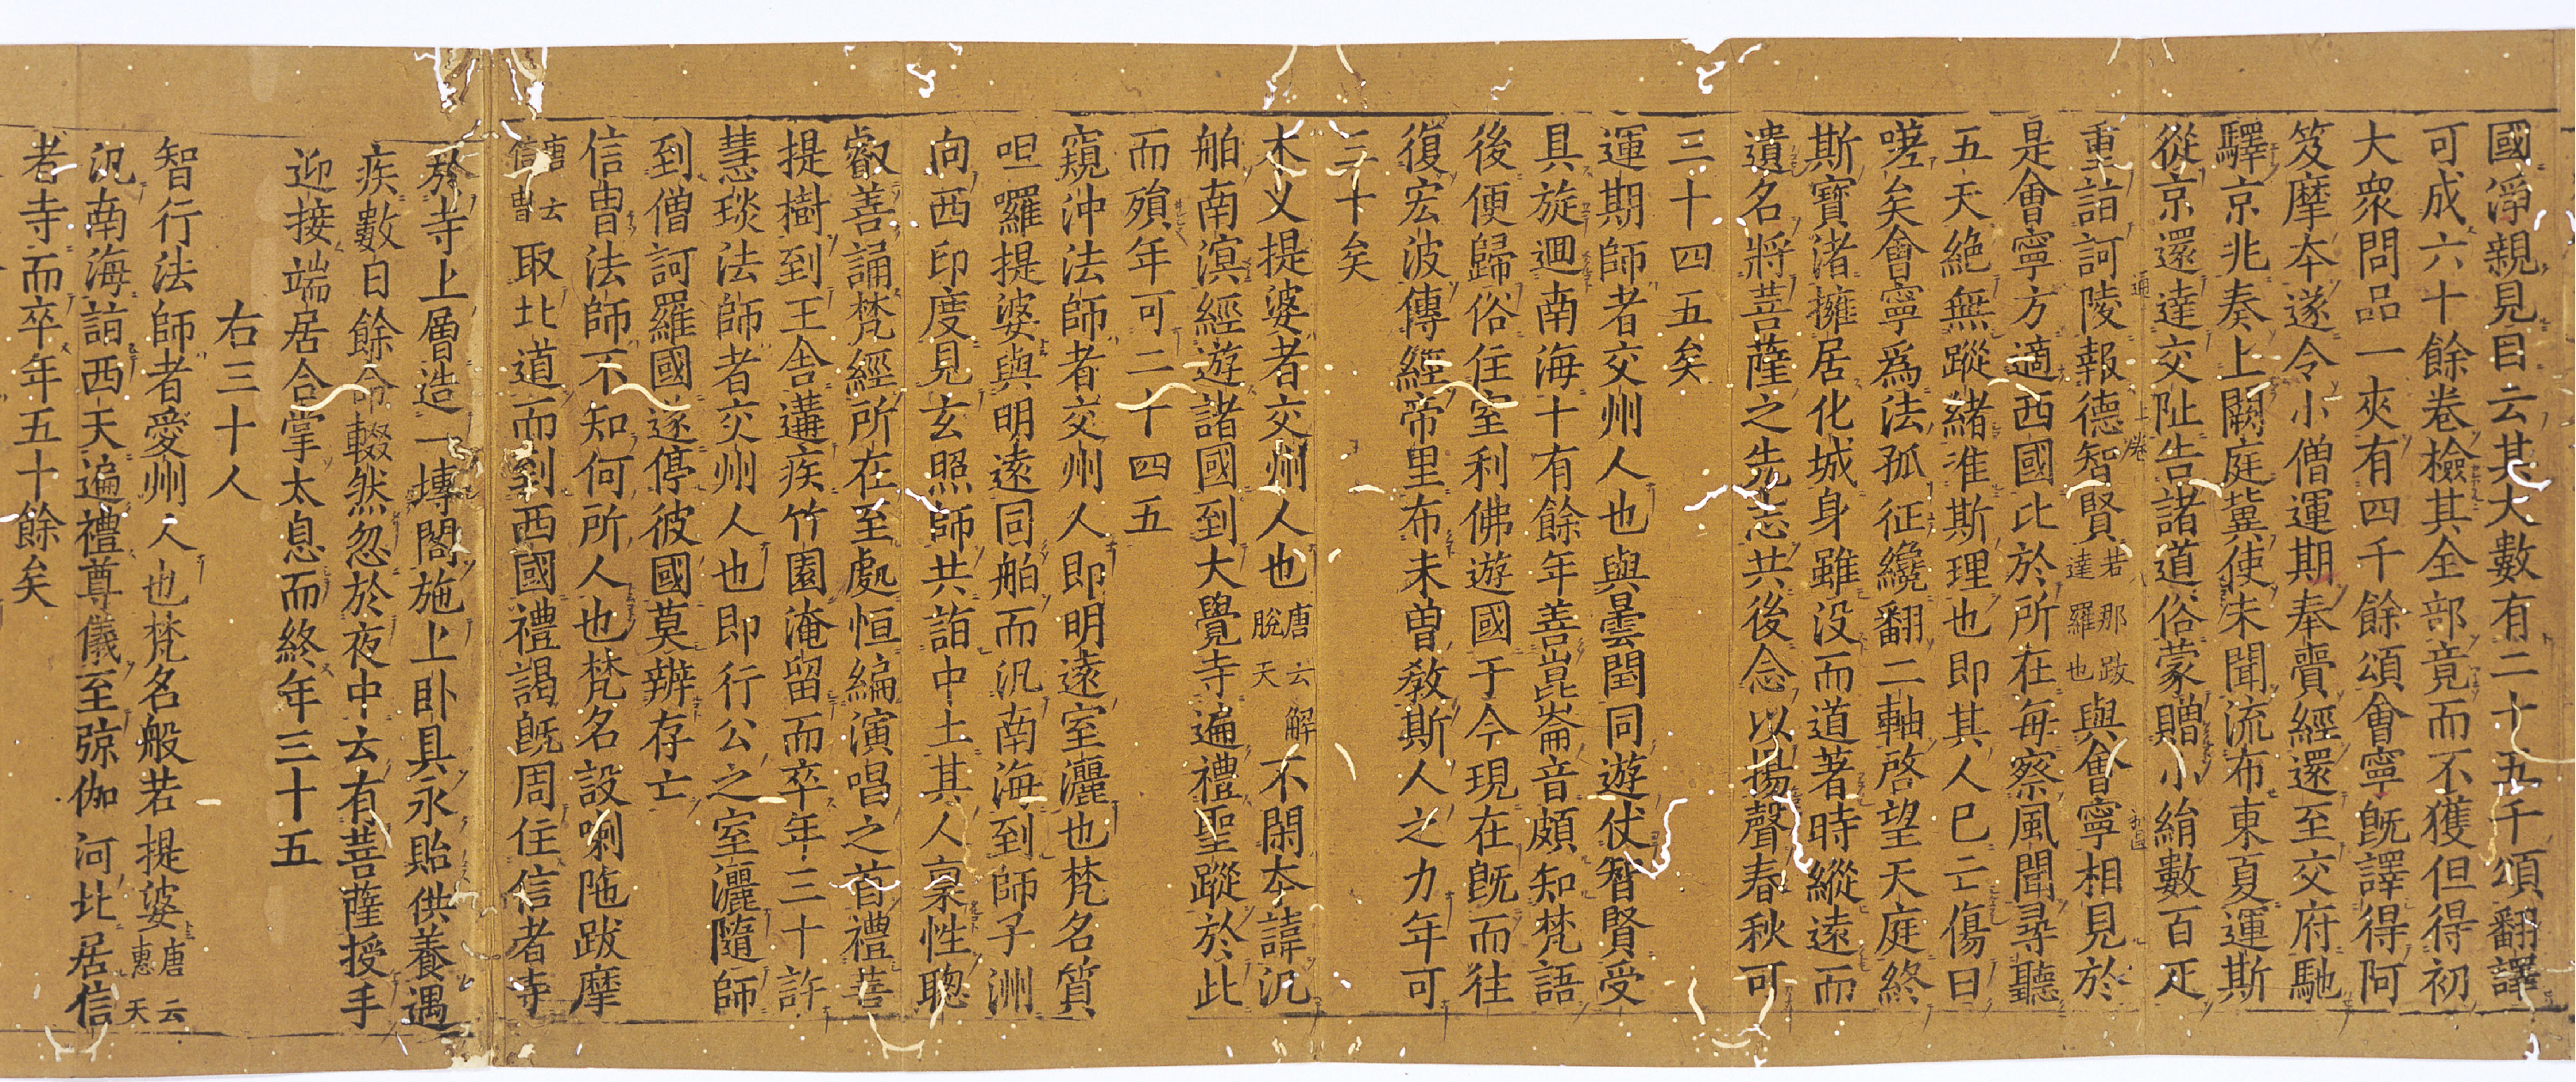 國淨親見目云其大數有二十五千頌翻譯
可成六十餘卷檢其全部竟而不獲但得初
大衆問品一夾有四千餘頌會寧旣譯得阿
笈摩夲遂令小僧運期奉賷經還至交府馳
驛京兆奏上闕庭兾使未聞流布東夏運斯
從京還達交阯告諸道俗蒙贈小絹數百疋
重詣訶陵報德智賢若那跋達羅也與會寧相見於
是會寧方適西國比於所在每察風聞尋聽
五天絕無蹤緒准斯理也即其人已亡傷曰
嗟矣會寧爲法孤征纔翻二軸啓望天庭終
斯寶渚擁居化城身雖没而道著時縱遠而
遺名將菩薩之先志共後念以揚聲春秋可
三十四五矣
運期師者交州人也與曇閏同遊仗智賢受
具旋迴南海十有餘年善崑崙音頗知梵語
後便歸俗住室利佛遊國于今現在旣而往
復宏波傳經帝里布未曾教斯人之力年可
三十矣
木叉提婆者交州人也唐云解脫天不閑夲諱汎
舶南溟經遊諸國到大覺寺遍禮聖蹤於此
而殞年可二十四五
窺沖法師者交州人即明遠室灑也梵名質
呾囉提婆與明遠同舶而汎南海到師子洲
向西印度見玄照師共詣中土其人稟性聰
叡善誦梵經所在至處恒編演唱之首禮菩
提樹到王舍遘疾竹園淹留而卒年三十許
慧琰法師者交州人也即行公之室灑隨師
到僧訶羅國遂停彼國莫辨存亡
信胄法師不知何所人也梵名設喇陁跋摩
唐云信胄取北道而到西國禮謁旣周住信者寺
於寺上層造一塼閣施上卧具永貽供養遇
疾數日餘命輟然忽於夜中云有菩薩授手
迎接端居合掌太息而終年三十五
右三十人
智行法師者愛州人也梵名般若提婆唐云惠天
汎南海詣西天遍禮尊儀至弶伽河北居信
者寺而卒年五十餘矣